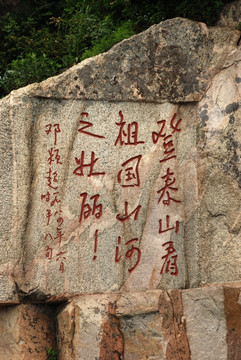 登泰山看
祖国山河
之壮丽！
邓颖超
一九八四年六月
时年八旬